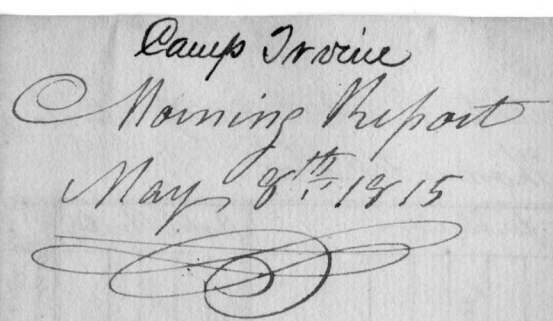 Camp Irvine
Morning Report
May 8th. 1815